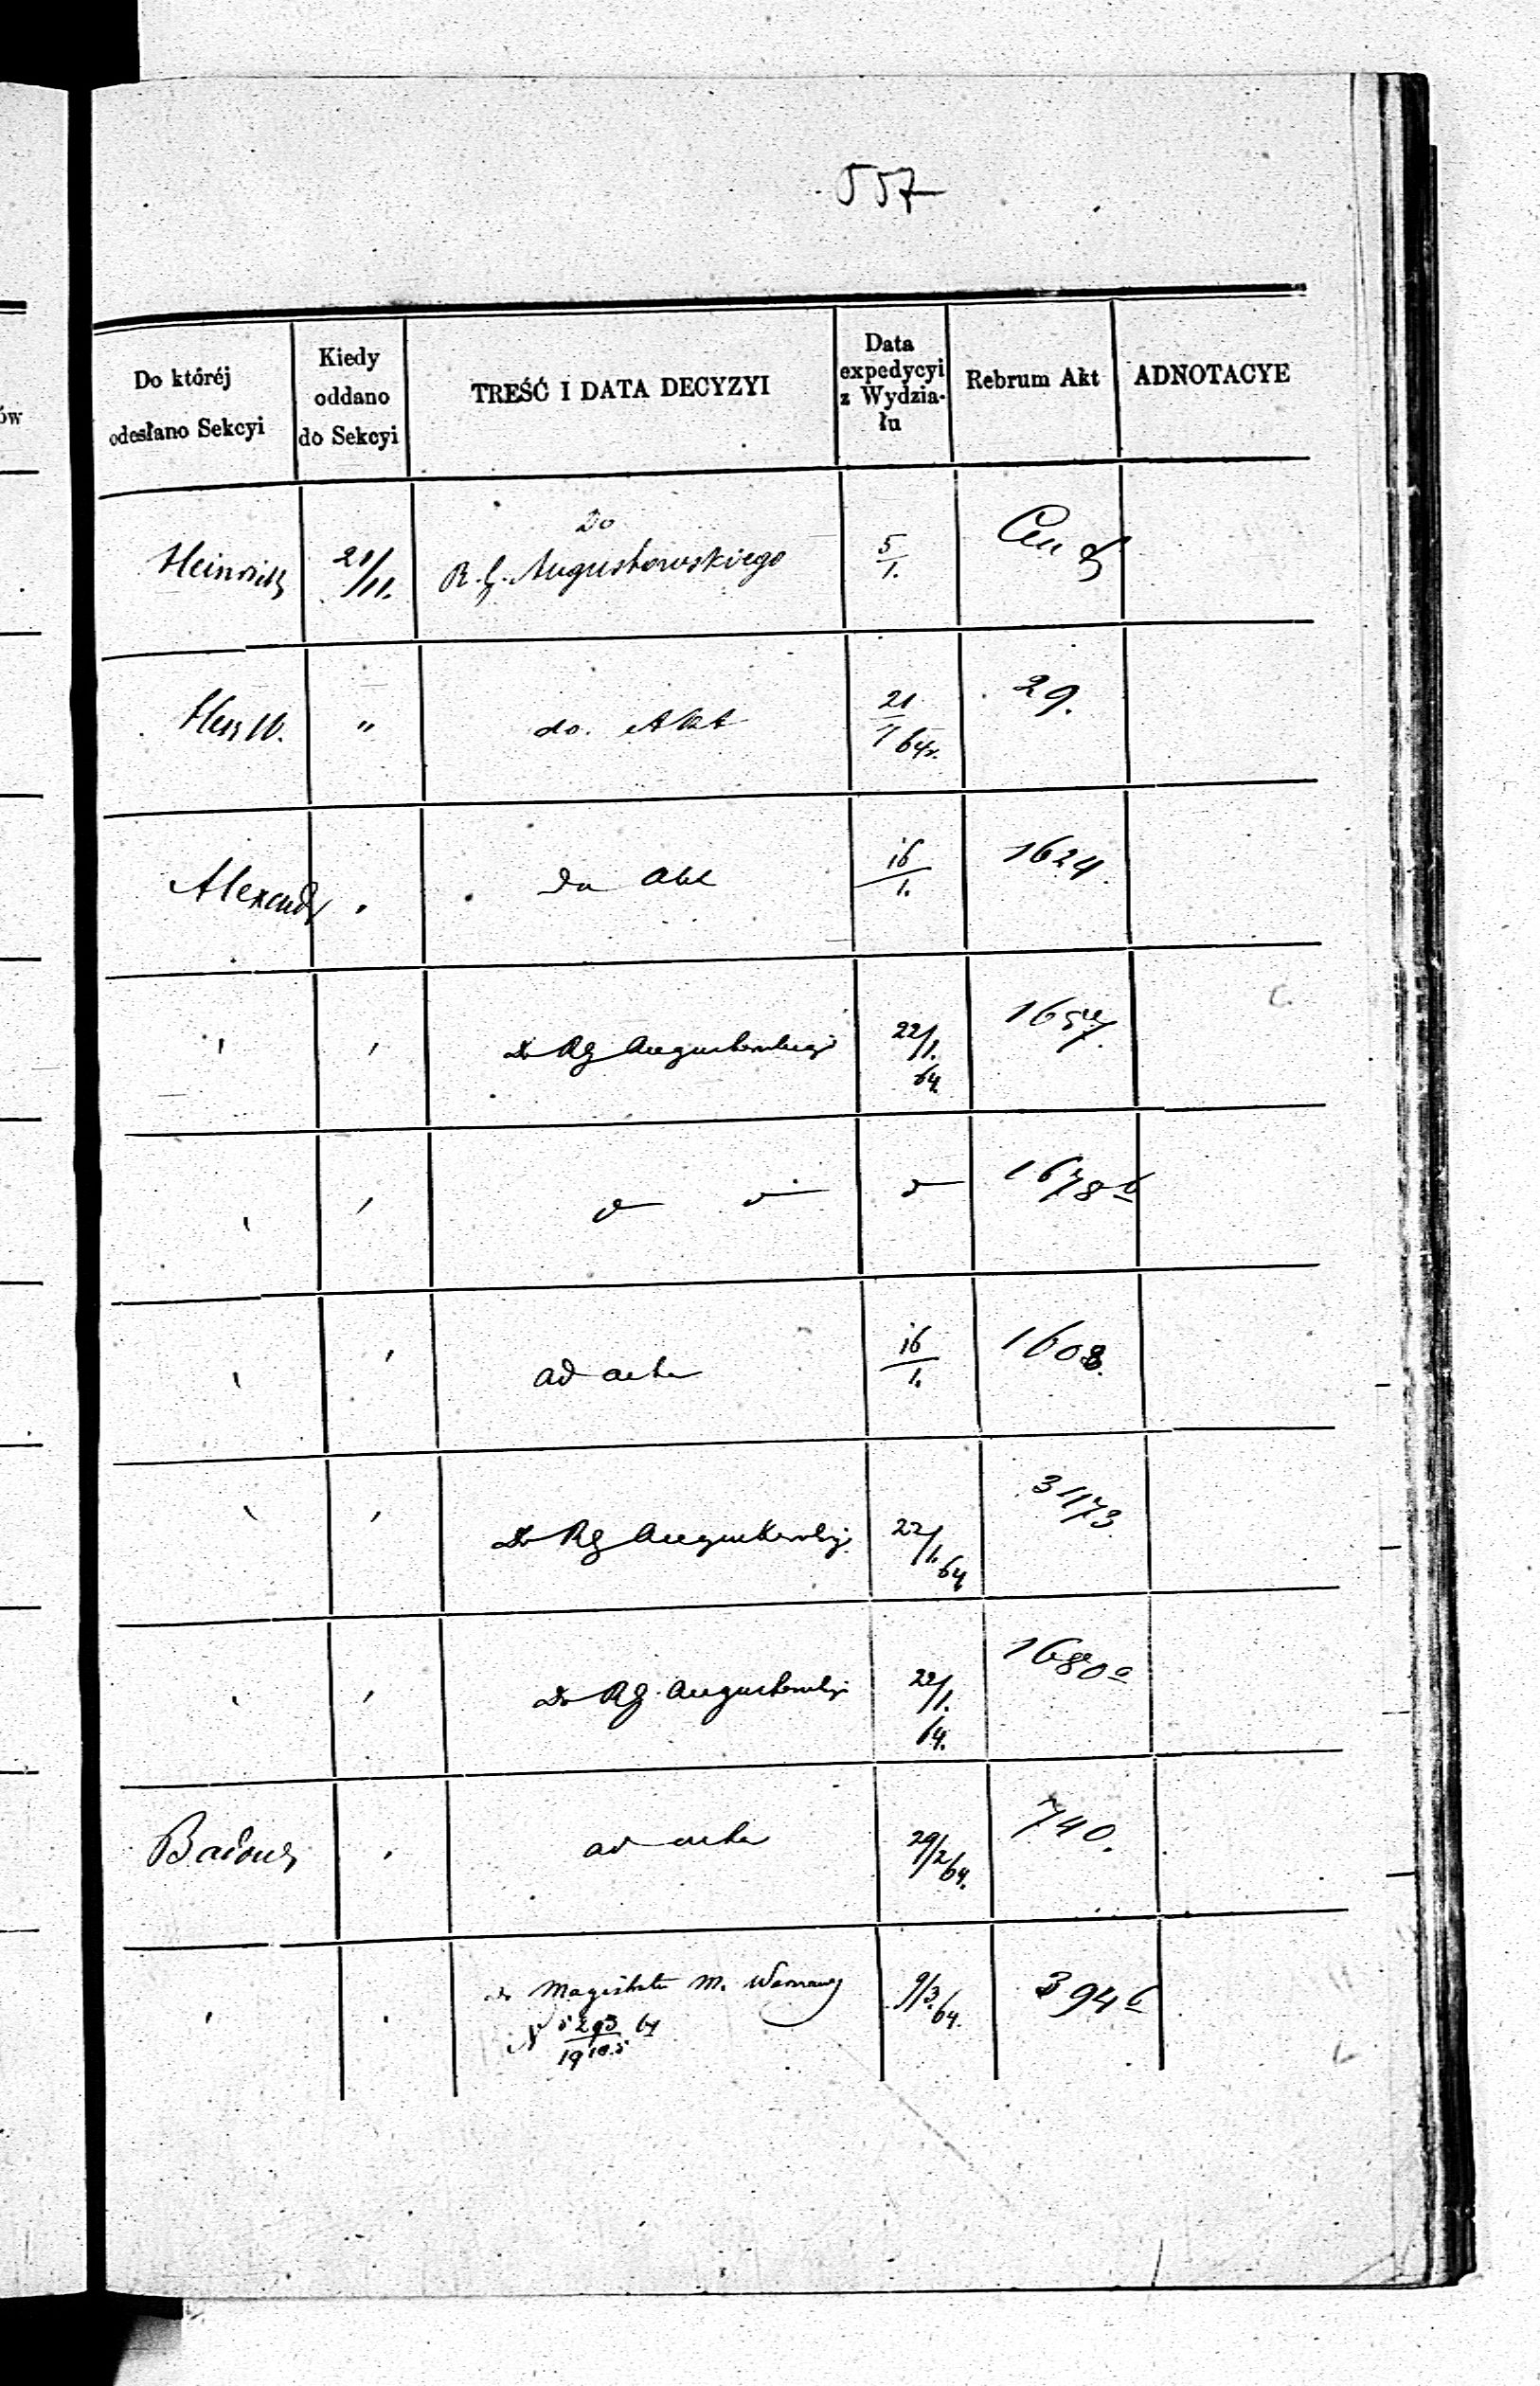 557
ów
Do któréj odesłano Sekcyi
Kiedy oddano do Sekcyi
TREŚĆ I DATA DECYZYI
Data expedycyi z Wydzia-łu
Rebrum Akt
ADNOTACYE
Heinrich 21/11. Do R. G. Augustowskiego 5/1.
" do. Akt 21/1 64r. 29.
Alexand Do Akt 16/1. 1624.
' ' Do RG Augustowskiego 22/1. 64 1657.
' ' 1678 b
' ' ad acta 16/1. 1608.
' ' Do RG Augustowskiego 22/1. 64 3173
' ' Do RG Augustowskiego 22/1. 64. 1680 a
ad acta 29/2 64. 740.
' ' do Magistratu M. Warszawy 9/3. 64. 394 b
N 5293/19185 64